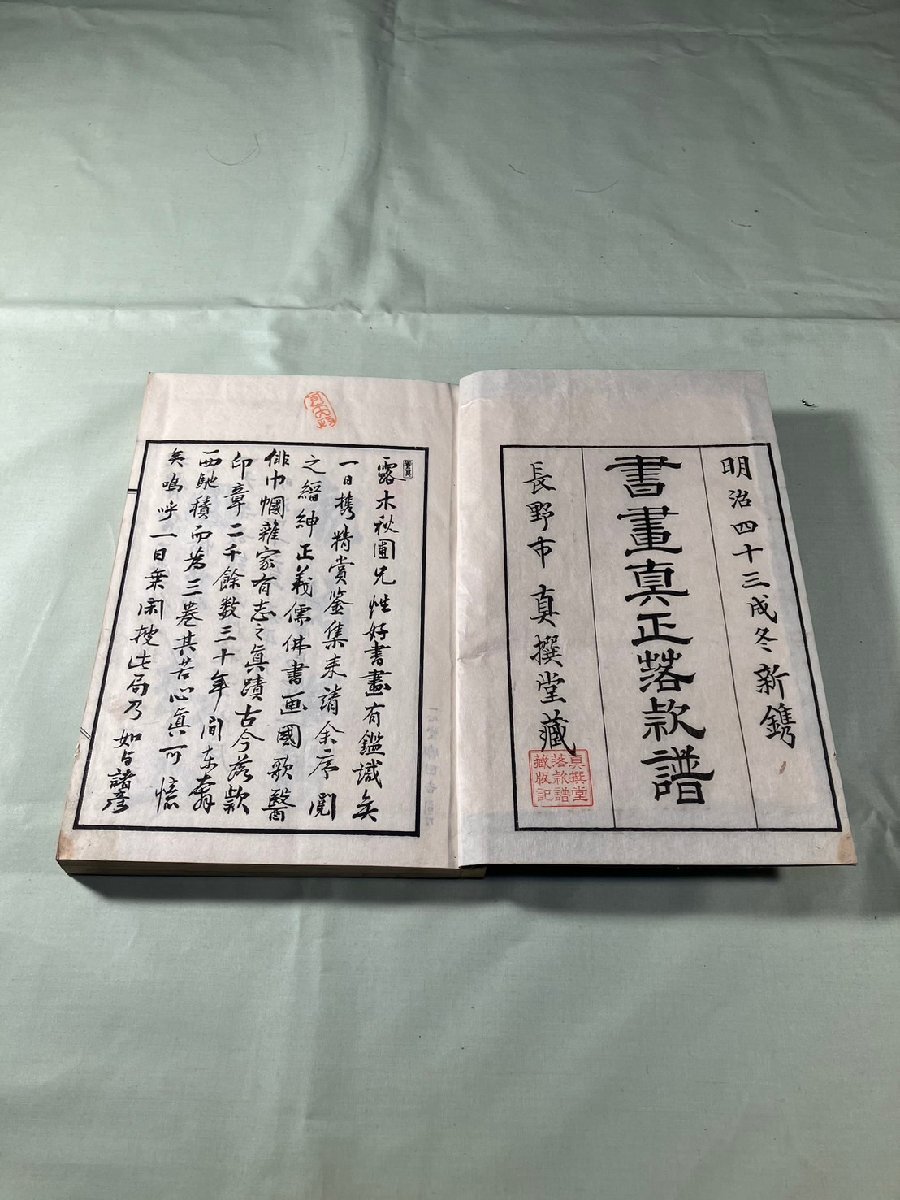 明治四十三戌冬新鐫
書畫真正落款譜
長野市 真撰堂藏
真撰堂
落款譜
藏版記
露木秋圃先性好書畫有鑑識矣
一日携精賞鑒集来請余序閲
之縉紳正義儒佛書画國歌醫
俳巾幗雜家有志之眞蹟古今落款
印章二千餘数三十年间东奔
西馳積而為三卷其苦心眞可憶
矣嗚呼一日棄閑挍此局乃如与諸彦